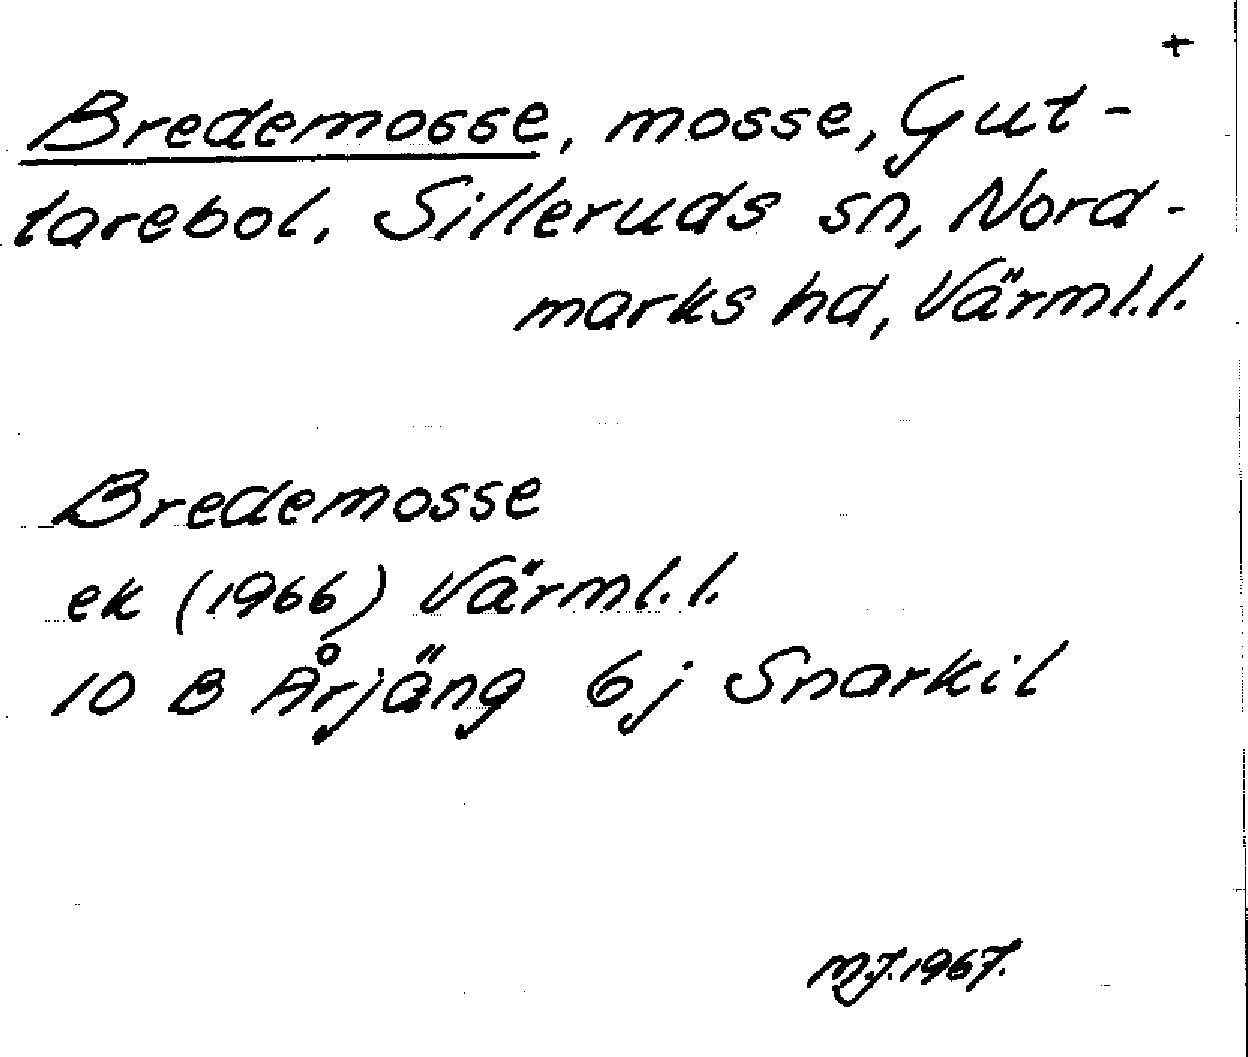 +
Bredemosse, mosse, Gut-
tarebol, Silleruds sn, Nord-
marks hd, Värml.l.
Bredemosse
ek (1966) Värml.l.
10 B Årjäng 6j Snarkil
M.J. 1967.